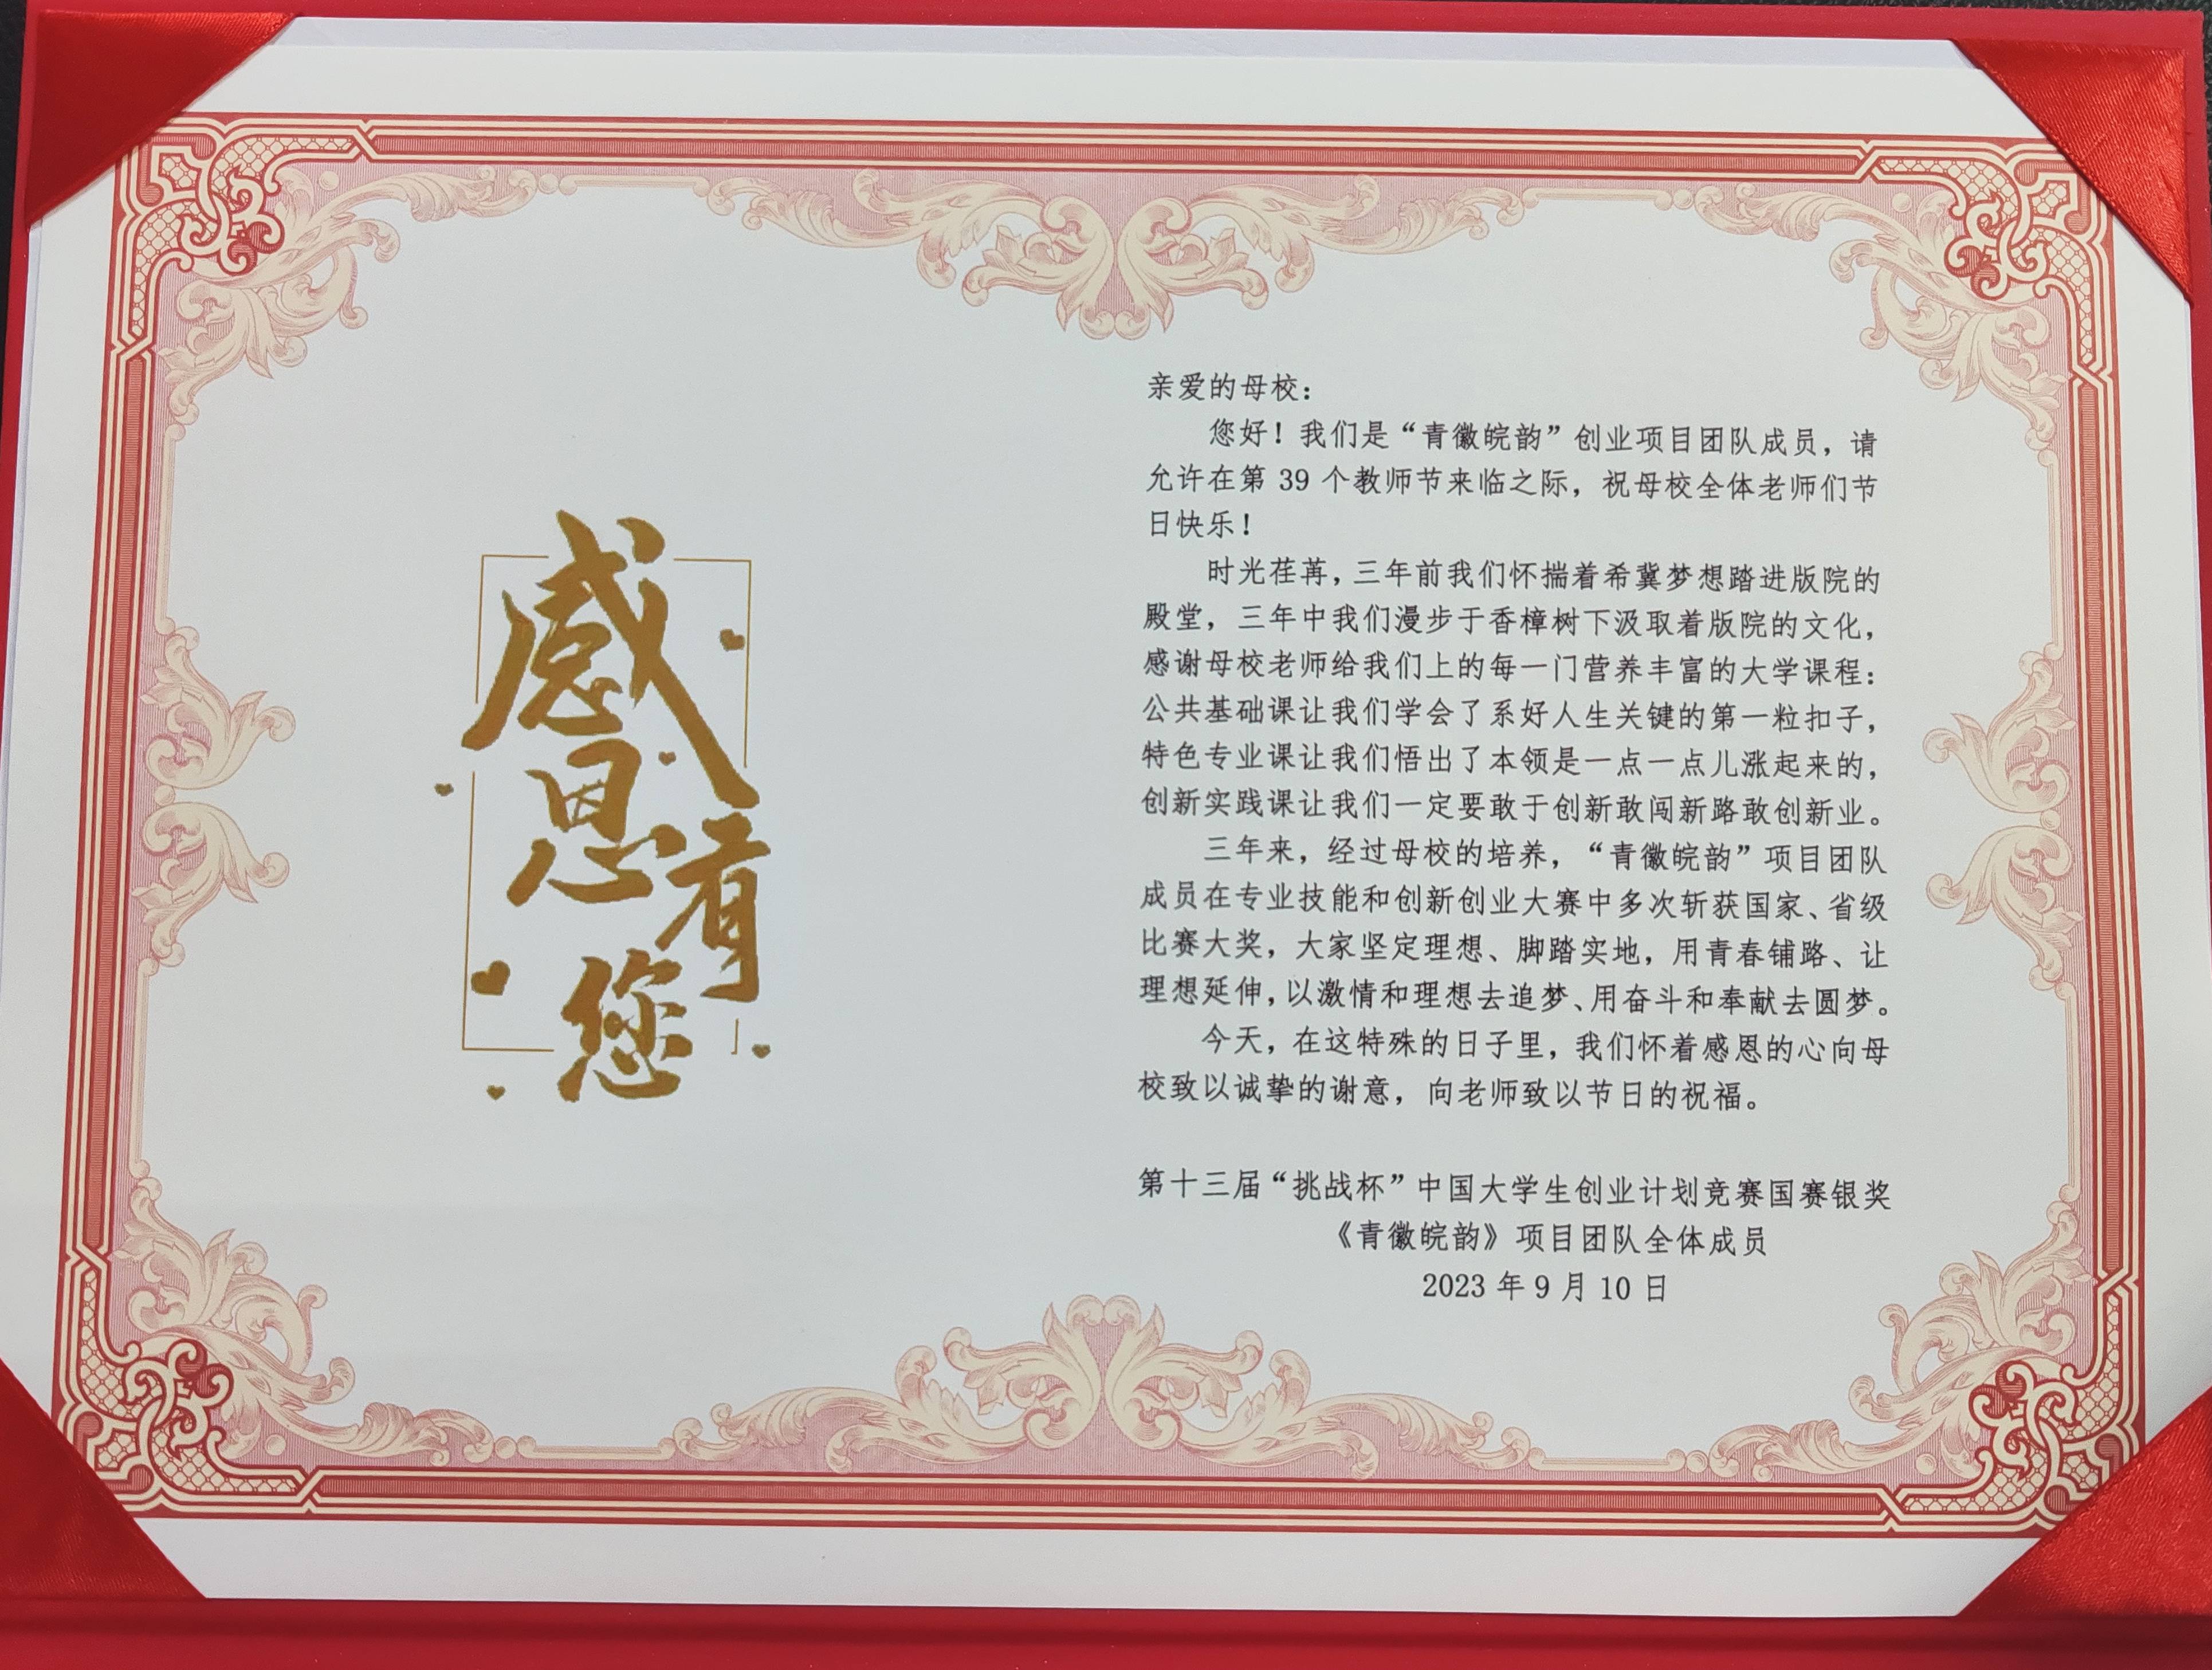 感恩有您
亲爱的母校：
您好！我们是“青徽皖韵”创业项目团队成员，请
允许在第 39 个教师节来临之际，祝母校全体老师们节
日快乐！
时光荏苒，三年前我们怀揣着希冀梦想踏进版院的
殿堂，三年中我们漫步于香樟树下汲取着版院的文化，
感谢母校老师给我们上的每一门营养丰富的大学课程：
公共基础课让我们学会了系好人生关键的第一粒扣子，
特色专业课让我们悟出了本领是一点一点儿涨起来的，
创新实践课让我们一定要敢于创新敢闯新路敢创新业。
三年来，经过母校的培养，“青徽皖韵”项目团队
成员在专业技能和创新创业大赛中多次斩获国家、省级
比赛大奖，大家坚定理想、脚踏实地，用青春铺路、让
理想延伸，以激情和理想去追梦、用奋斗和奉献去圆梦。
今天，在这特殊的日子里，我们怀着感恩的心向母
校致以诚挚的谢意，向老师致以节日的祝福。
第十三届“挑战杯”中国大学生创业计划竞赛国赛银奖
《青徽皖韵》项目团队全体成员
2023 年 9 月 10 日